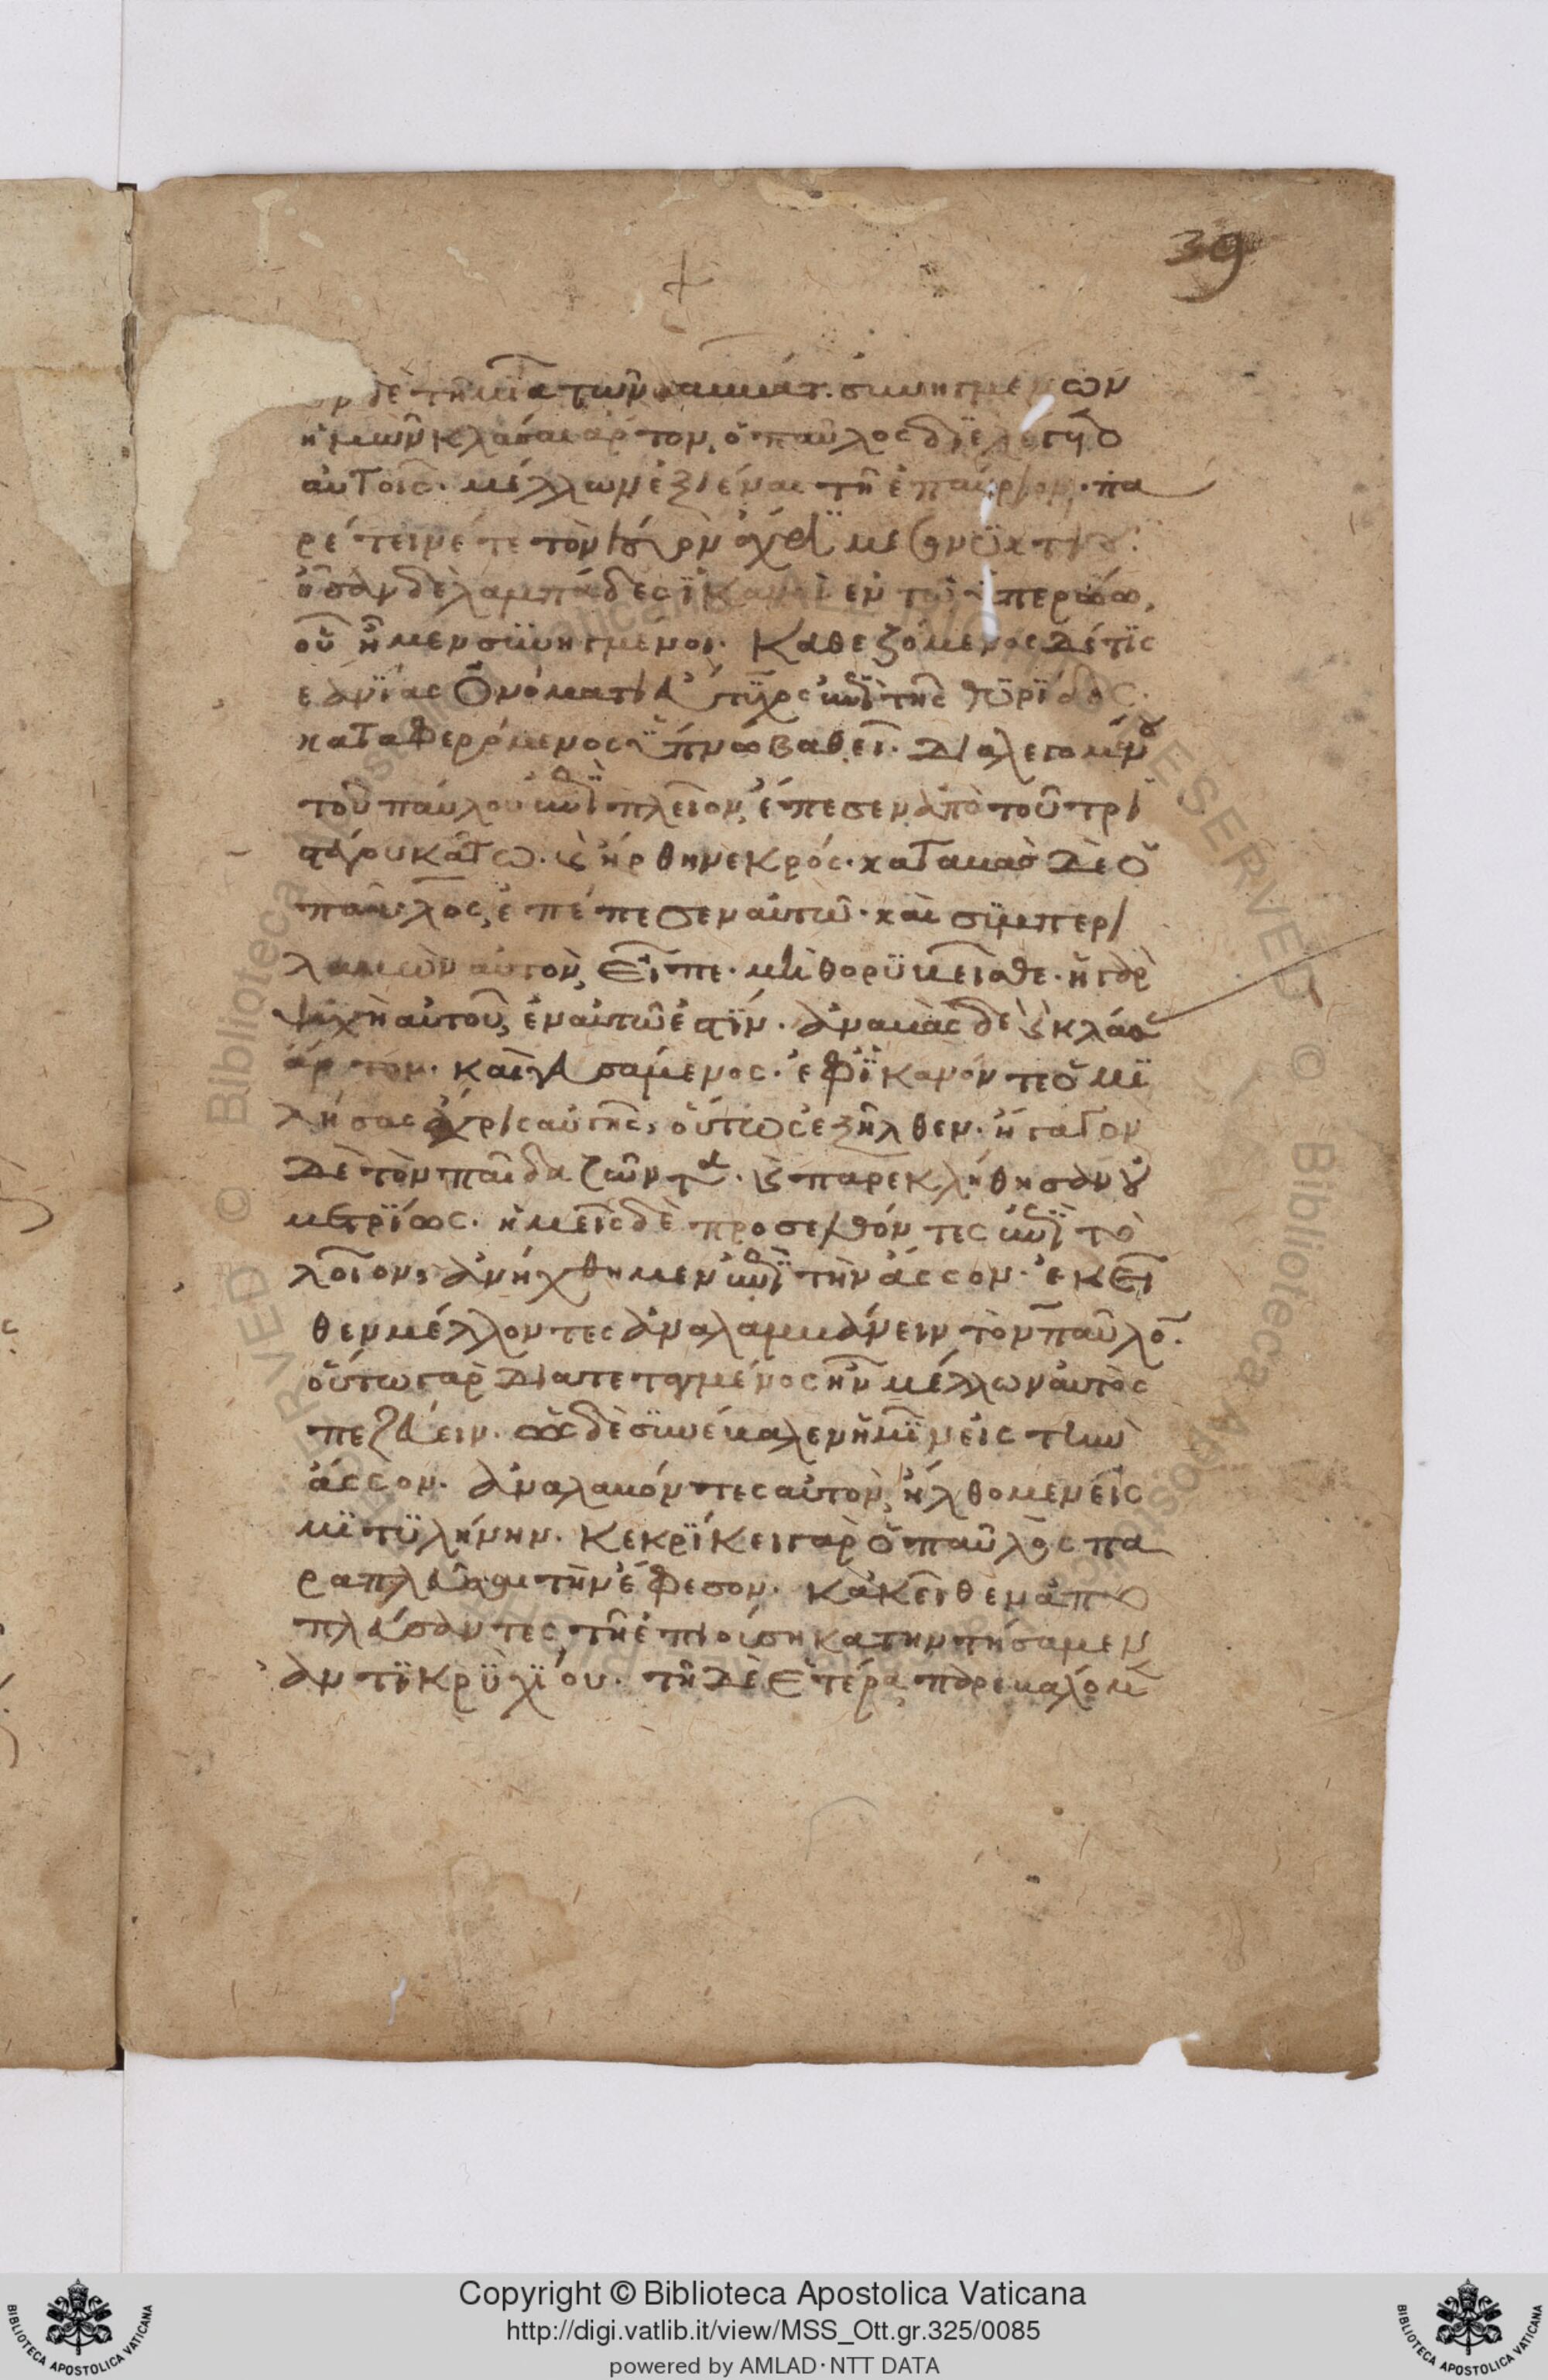 39
ἐν δὲ τῆ μιᾶ τῶν σαββάτ. συνηγμένων
ἡμῶν κλάσαι ἄρτον, ὁ παῦλος διελέγετο
αὐτοῖς· μέλλων ἐξιέναι τῆ ἐπαύριον· πα
ρέτεινέ τε τὸν λόγον ἄχρι μεσονυκτίου:
ἦσαν δὲ λαμπάδες ἱκαναὶ ἐν τῶ ὑπερώω,
οὗ ἦμεν συνηγμένοι. Καθεζόμενος δέ τις
νεανίας ὀνόματι εὔτυχος ἐπὶ τῆς θυρίδος·
καταφερόμενος ὕπνω βαθεῖ. διαλεγομένου
τοῦ παύλου ἐπὶ πλεῖον, ἔπεσεν ἀπὸ τοῦ τρι
στέγου κάτω. καὶ ἤρθη νεκρός. καταβὰς δὲ ὁ
παῦλος, ἐπέπεσεν αὐτῶ. καὶ συμπερι
λαβὼν αὐτὸν, εἶπε. μὴ θορυβεῖσθε. ἡ γὰρ
ψυχὴ αὐτοῦ, ἐν αὐτῶ ἐστίν. ἀναβὰς δὲ καὶ κλάσας
ἄρτον. καὶ γευσάμενος. ἐφ' ἱκανόν τε ὁμι
λήσας ἄχρις αὐγῆς, οὕτως ἐξῆλθεν. ἤγαγον
δὲ τὸν παῖδα ζῶντα. καὶ παρεκλήθησαν οὐ
μετρίως. ἡμεῖς δὲ προσελθόντες ἐπὶ τὸ
λοῖον, ἀνήχθημεν ἐπὶ τὴν ἄσσον. ἐκεῖ
θεν μέλλοντες ἀναλαμβάνειν τὸν παῦλον.
οὕτω γὰρ διατεταγμένος ἦν μέλλων αὐτὸς
πεζεύειν. ὡς δὲ συνέβαλεν ἡμῖν εἰς τὴν
ἄσσον. ἀναλαβόντες αὐτὸν, ἤλθομεν εἰς
μιτυλήνην. Κεκρίκει γὰρ ὁ παῦλος πα
ραπλεῦσαι τὴν ἔφεσον. κἀκεῖθεν ἀπο
πλεύσαντες, τῆ ἐπιούση κατηντήσαμεν
ἀντικρὺ χίου. τῆ δὲ ἑτέρα παρεβάλομεν
Copyright © Biblioteca Apostolica Vaticana
http://digi.vatlib.it/view/MSS_Ott.gr.325/0085
powered by AMLAD · NTT DATA